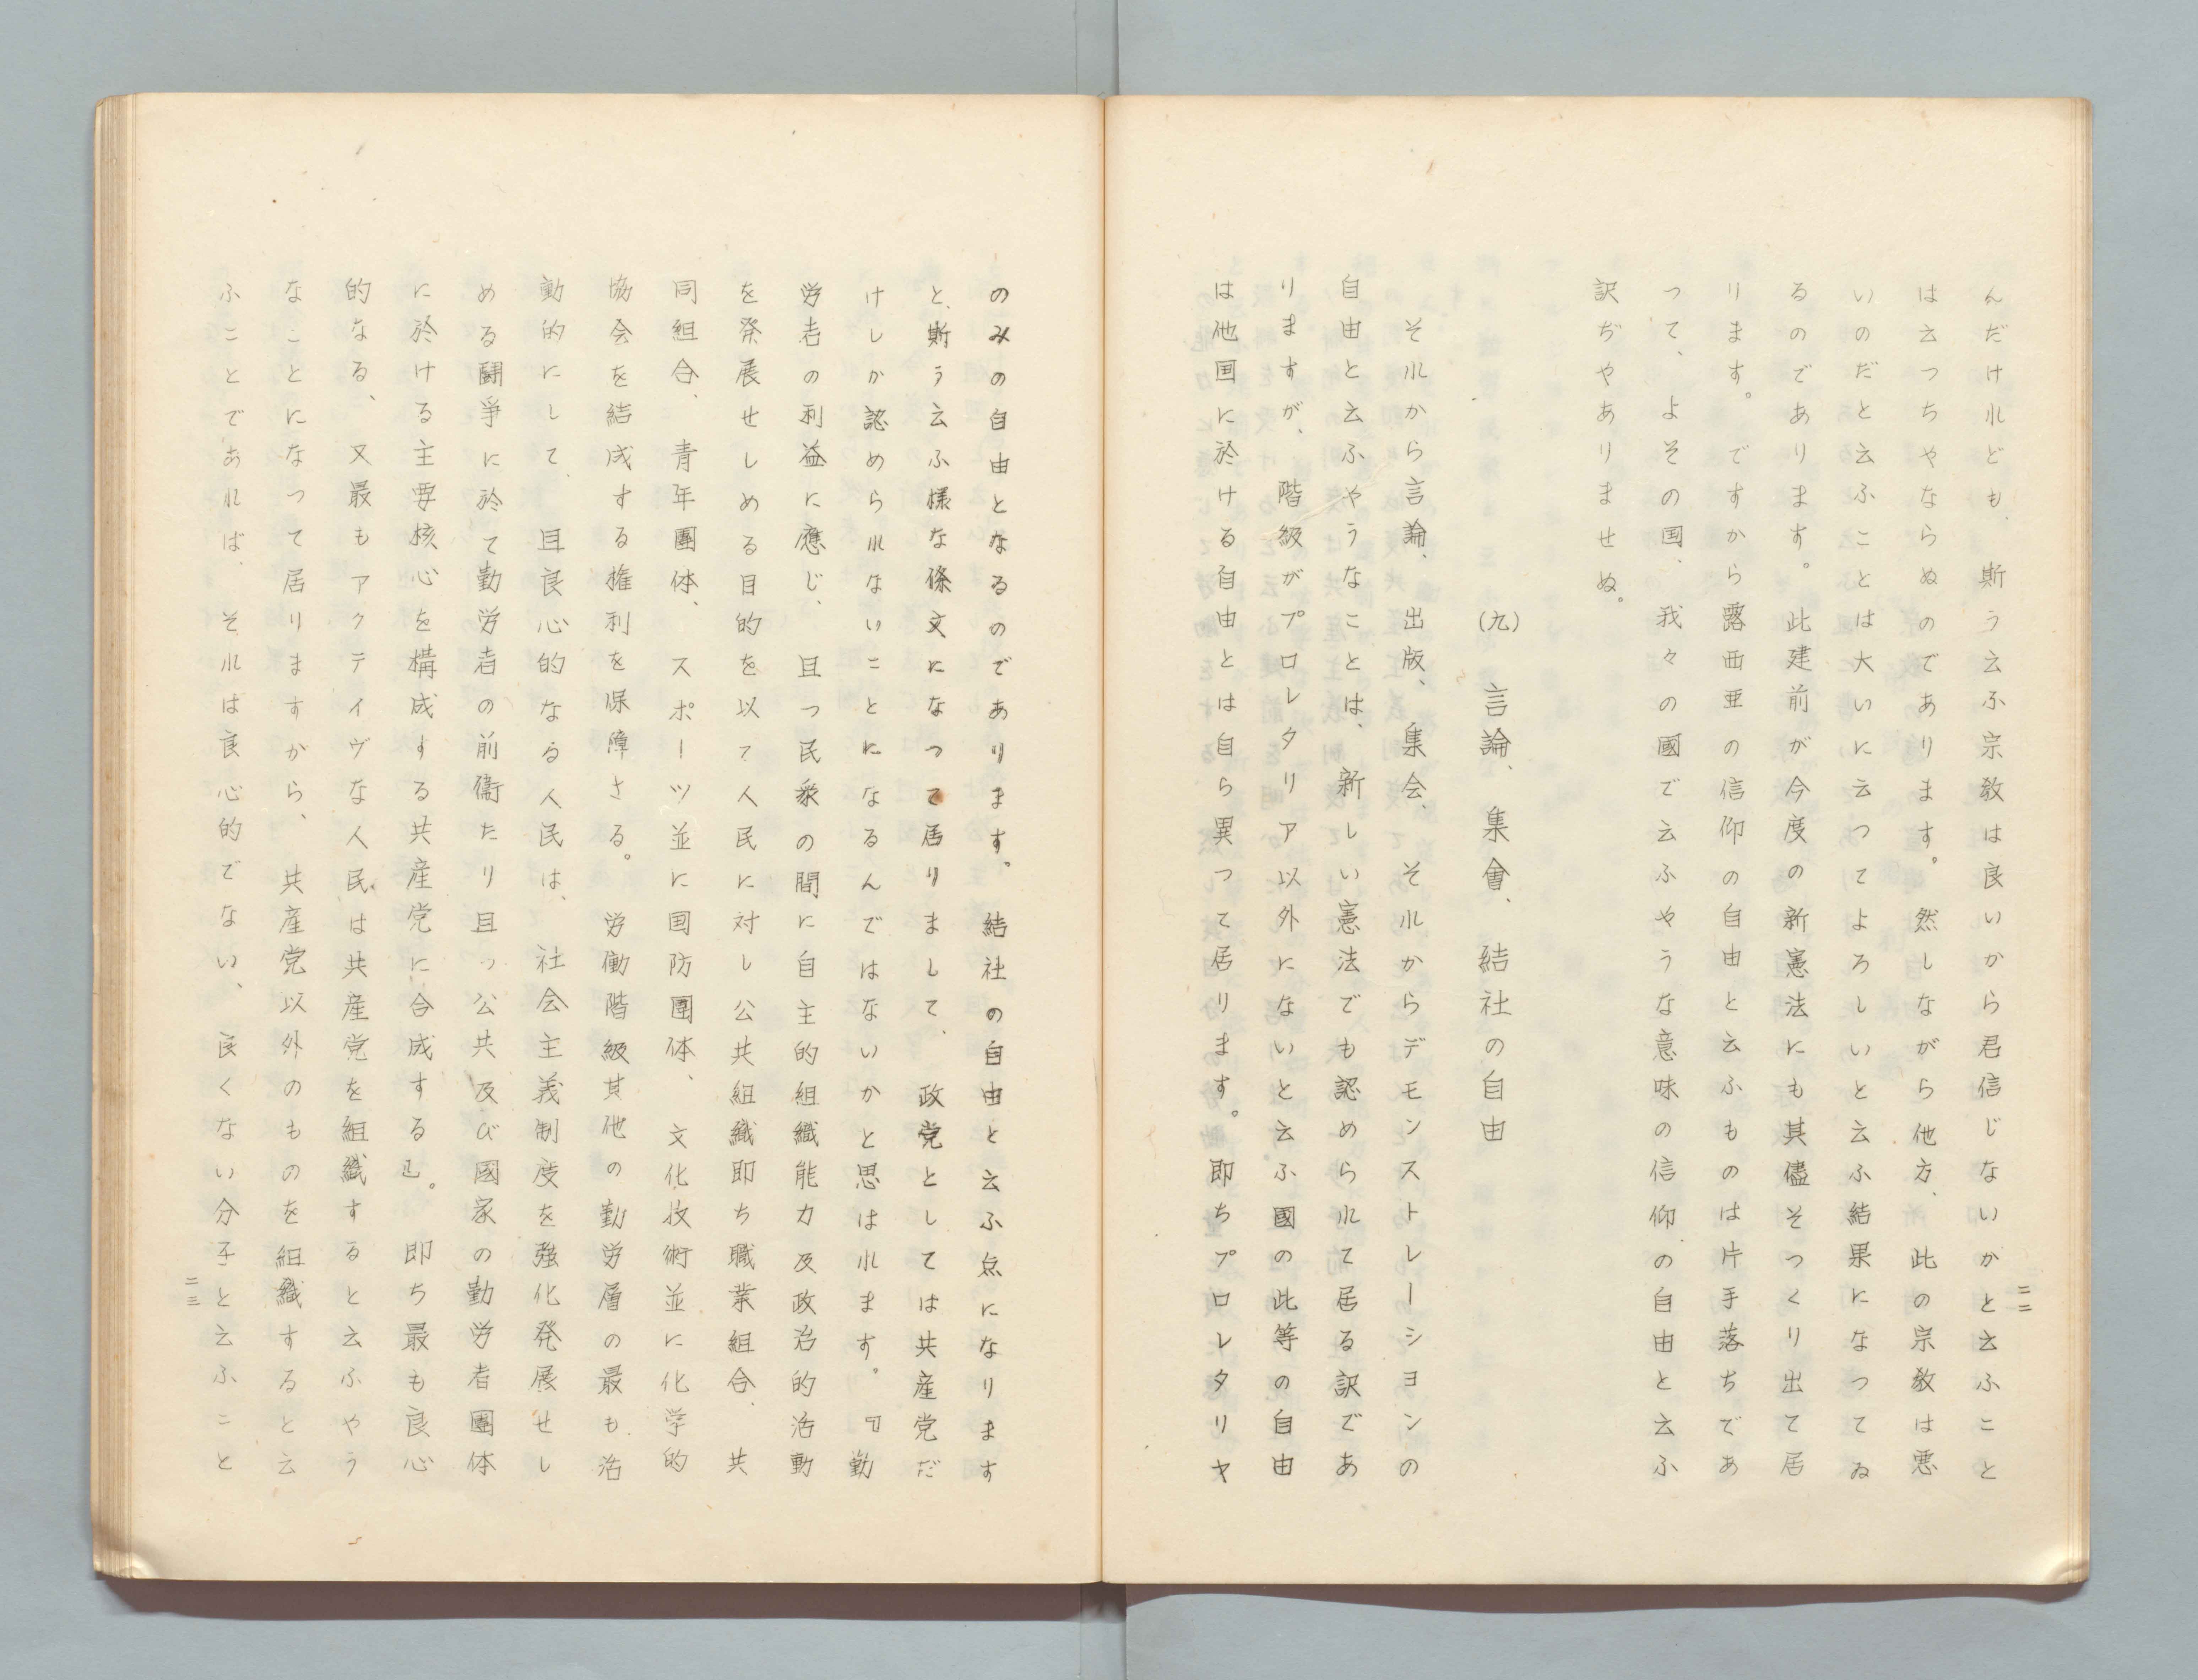 んだけれども、斯う云ふ宗教は良いから君信じないかと云ふこと
は云つちやならぬのであります。然しながら他方、此の宗教は悪
いのだと云ふことは大いに云つてよろしいと云ふ結果になつてゐ
るのであります。此建前が今度の新憲法にも其儘そつくり出て居
ります。ですから露西亜の信仰の自由と云ふものは片手落ちであ
つて、よその国、我々の國で云ふやうな意味の信仰の自由と云ふ
訳ぢやありませぬ。
(九) 言論、集會、結社の自由
それから言論、出版、集会、それからデモンストレーシヨンの
自由と云ふやうなことは、新しい憲法でも認められて居る訳であ
りますが、階級がプロレタリア以外にないと云ふ國の此等の自由
は他国に於ける自由とは自ら異つて居ります。即ちプロレタリヤ
二二
のみの自由となるのであります。結社の自由と云ふ点になります
と、斯う云ふ様な條文になつて居りまして、政党としては共産党だ
けしか認められないことになるんではないかと思はれます。『勤
労者の利益に應じ、且つ民衆の間に自主的組織能力及政治的活動
を発展せしめる目的を以て人民に対し公共組織即ち職業組合、共
同組合、青年團体、スポーツ並に国防團体、文化技術並に化学的
協会を結成する権利を保障さる。労働階級其他の勤労層の最も活
動的にして、且良心的なる人民は、社会主義制度を強化発展せし
める闘爭に於て勤労者の前衞たり且つ公共及び國家の勤労者團体
に於ける主要核心を構成する共産党に合成する』。即ち最も良心
的なる、又最もアクテイヴな人民は共産党を組織すると云ふやう
なことになつて居りますから、共産党以外のものを組織すると云
ふことであれば、それは良心的でない、良くない分子と云ふこと
二三